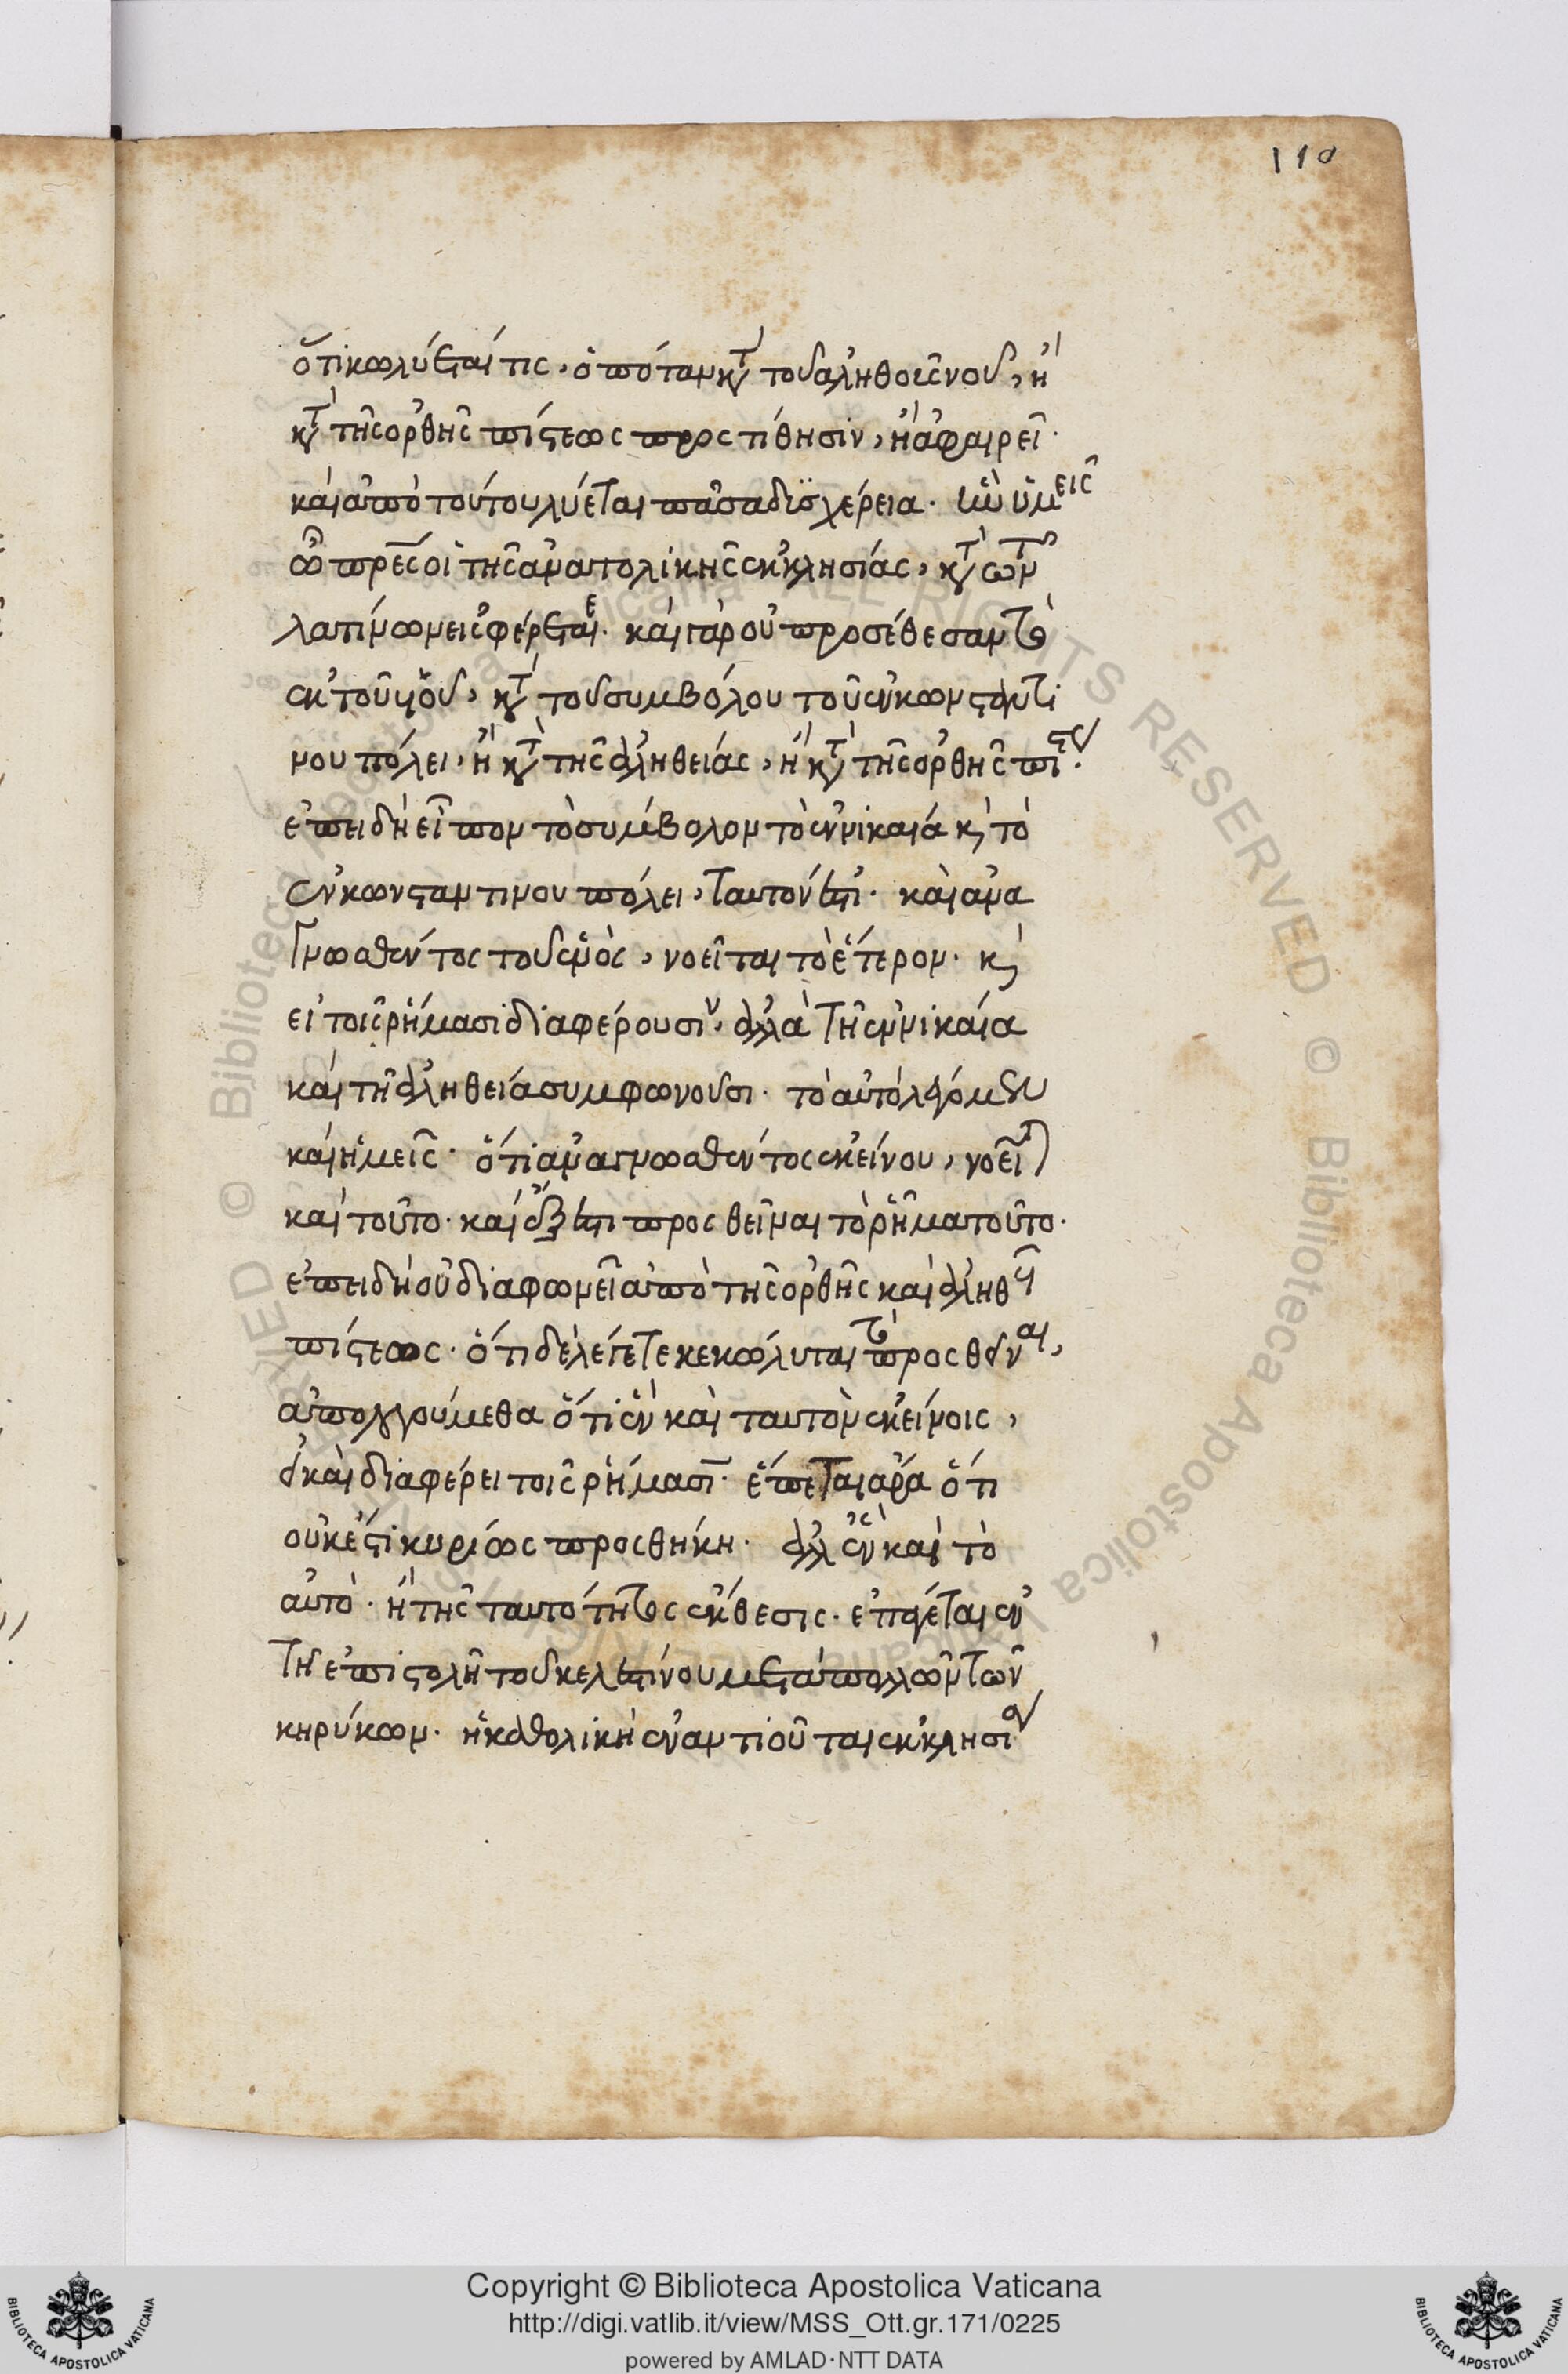 110
ὅτι κωλύεται τις, ὁπόταν κατὰ τοῦ ἀληθοῖς νοῦ, ἢ
κατὰ τῆς ὀρθῆς πίστεως προστίθησιν, ἢ ἀφαιρεῖ.
καὶ ἀπὸ τούτου λύεται πᾶσα δϊσχέρεια. ὑμεῖς
ὦ πρέσβεις οἱ τῆς ἀνατολικῆς ἐκκλησίας, κατὰ τῶν
λατίνων εἰσφέρεται. καὶ γὰρ οὐ προσέθεσαν τὸ
ἐκ τοῦ υἱοῦ, κατὰ τοῦ συμβόλου τοῦ ἐν κωνσταντι
νου πόλει, ἢ κατὰ τῆς ἀληθείας, ἢ κατὰ τῆς ὀρθῆς πίστεως.
ἐπειδὴ εἶπον τὸ σύμβολον τὸ ἐν νικαία καὶ τὸ
ἐν κωνσταντινου πόλει, ταυτόν ἐστι. καὶ ἅμα
γνωσθέντος τοῦ ἑνὸς, νοεῖται τὸ ἕτερον. καὶ
εἰ τοῖς ῥήμασι διαφέρουσιν, ἀλλὰ τῇ ἐν νικαία
καὶ τῇ ἀληθεία συμφωνοῦσι. τὸ αὐτὸ λέγομεν
καὶ ἡμεῖς. ὅτι ἅμα γνωσθέντος ἐκείνου, νοεῖται
καὶ τοῦτο. καὶ ἔξεστι προσθεῖναι τὸ ῥῆμα τοῦτο.
ἐπειδὴ οὐ διαφωνεῖ ἀπὸ τῆς ὀρθῆς καὶ ἀληθοῦς
πίστεως. ὅτι δὲ λέγετε κεκώλυται τὸ προσθεῖναι,
ἀπολογούμεθα ὅτι ἓν καὶ ταυτὸν ἐκείνοις,
εἰ καὶ διαφέρει τοῖς ῥήμασι. ἕπεται ἄρα ὅτι
οὐκ ἔστι κυρίως προσθήκη. ἀλλ' ἓν καὶ τὸ
αὐτὸ. ἢ τῆς ταυτότητος ἔκθεσις. ἐπάγεται ἐν
τῇ ἐπιστολῇ τοῦ κελεστίνου μετὰ πολλῶν τῶν
κηρύκων. ἡ καθολικὴ ἐναντιοῦται ἐκκλησία
Copyright © Biblioteca Apostolica Vaticana
http://digi.vatlib.it/view/MSS_Ott.gr.171/0225
powered by AMLAD·NTT DATA